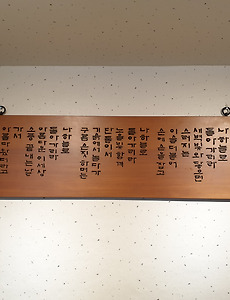 나 하늘로
돌아가리라
새벽빛 와 닿으면
스러지는
이슬 더불어
손에 손을 잡고
나 하늘로
돌아가리라
노을빛 함께
단둘이서
기슭에서 놀다가
구름 손짓하며는
나 하늘로
돌아가리라
아름다운 이 세상
소풍 끝내는 날
가서
아름다웠더라고